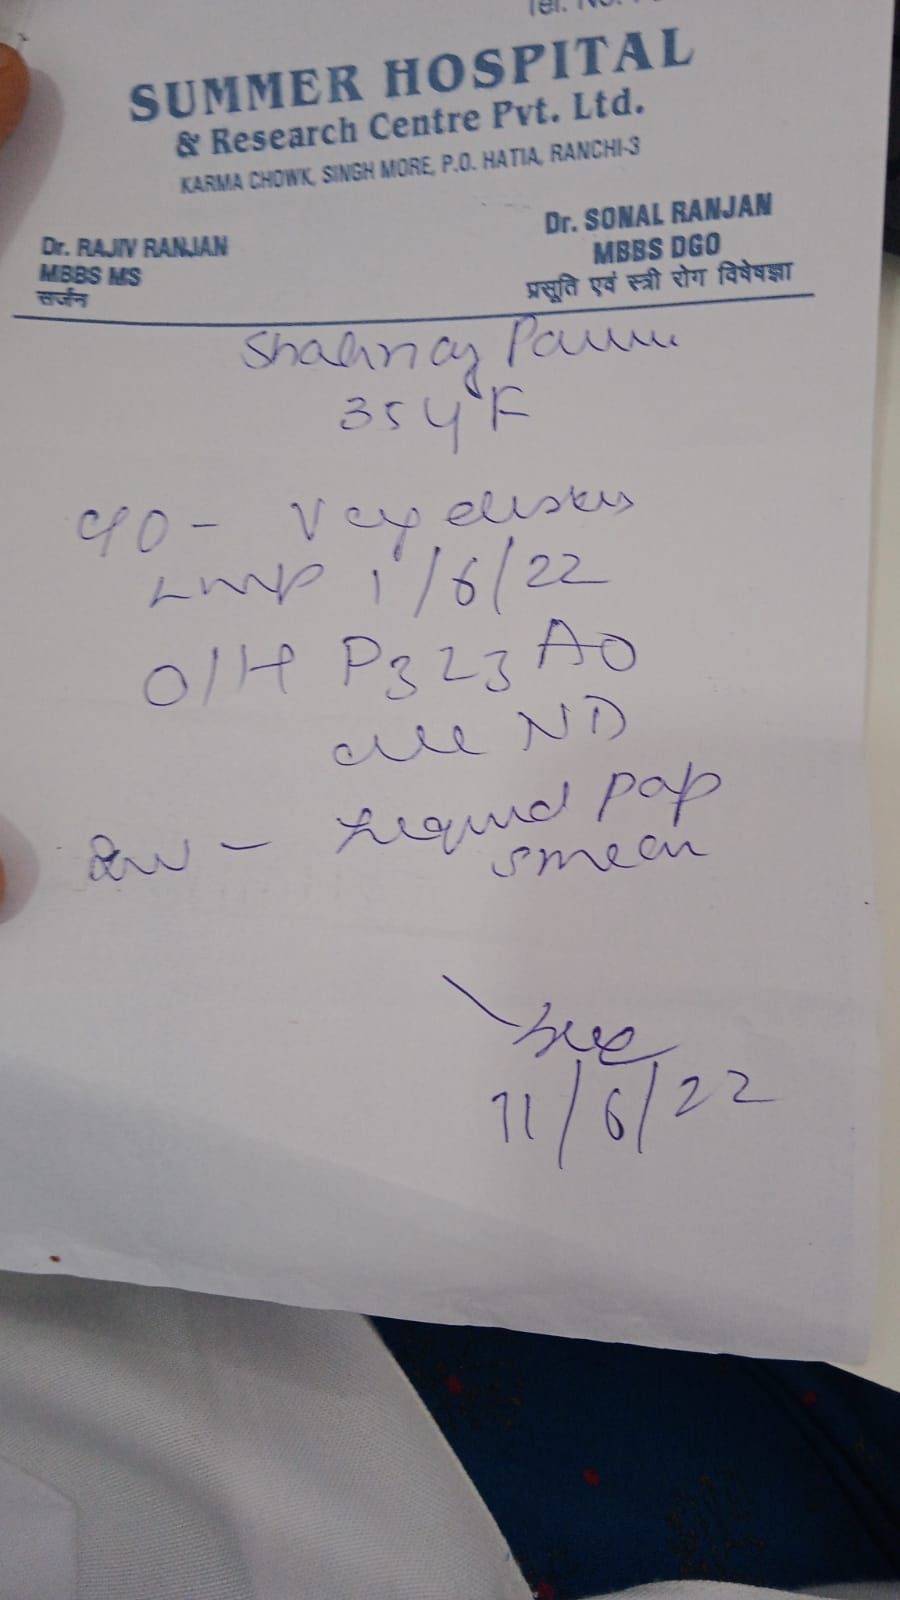 Tel. No.
SUMMER HOSPITAL
& Research Centre Pvt. Ltd.
KARMA CHOWK, SINGH MORE, P.O. HATIA, RANCHI-3
Dr. RAJIV RANJAN
MBBS MS
सर्जन
Dr. SONAL RANJAN
MBBS DGO
प्रसूति एवं स्त्री रोग विषेषज्ञा
Shahnaz
35 Y F
C/O -
LMP 1/6/22
O/H P3 2 3 A0
all ND
- Liquid pap
smear
11/6/22